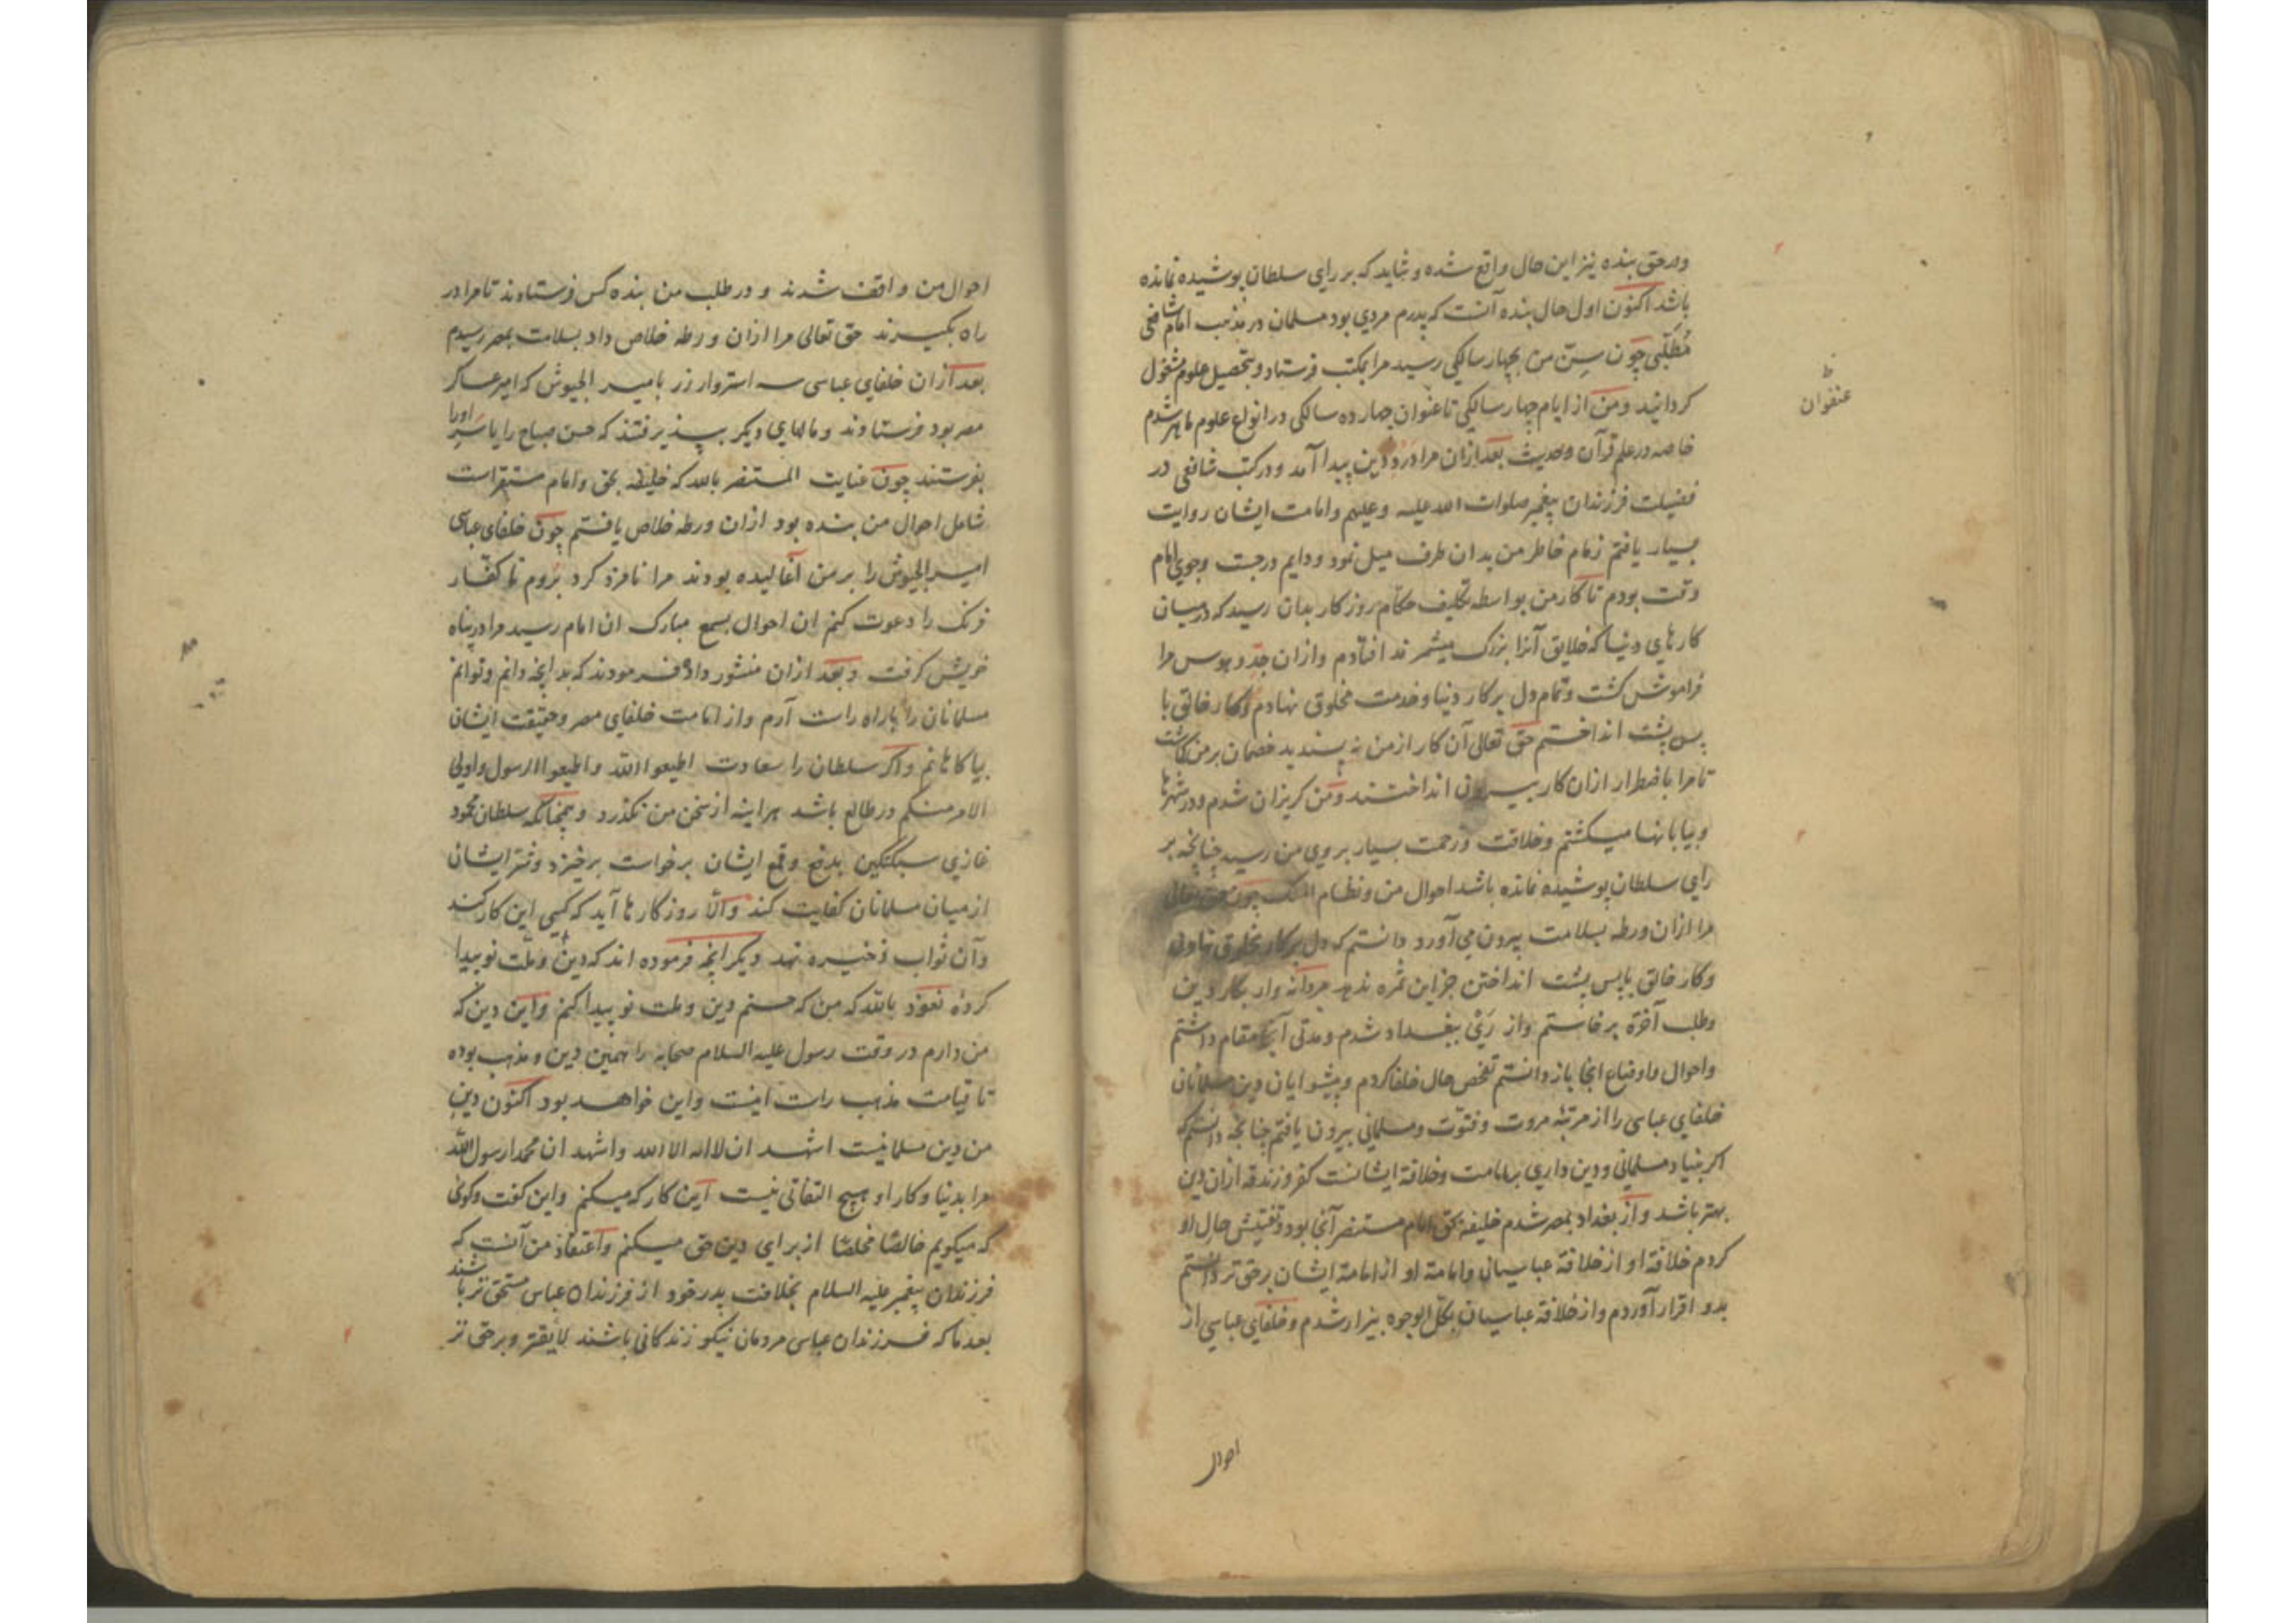 ودر حق بنده نیز این حال واقع شده و شاید که بر رای سلطان پوشیده نمانده
باشد اکنون اول حال بنده آنست که پدرم مردی بود مسلمان در مذهب امام شافعی
مُطّلبی چون سِنّ من بچهار سالکی رسید مرا بمکتب فرستاد و بتحصیل علوم مشغول
کردانید ومن از ایام چهار سالکی تا عنوان چهارده سالکی در انواع علوم ماهر شدم
عنفوان
خاصه در علم قرآن وحدیث بعد ازان مرا درد دین پیدا آمد ودر کتب شافعی در
فضیلت فرزندان پیغمبر صلوات الله علیه وعلیهم وامامت ایشان روایت
بسیار یافتم زمام خاطر من بدان طرف میل نمود ودایم در جست وجوی امام
وقت بودم تا کار من بواسطه تکلیف حکام روزکار بدان رسید که در میان
کارهای دنیا که خلایق آنرا بزرک میشمرند افتادم وازان جدّ وهوس مرا
فراموش کشت وتمام دل بر کار دنیا وخدمت مخلوق نهادم وکار خالق با
پس پشت انداختم حق تعالی آن کار از من نه پسندید خصمان بر من کماشت
تا مرا باضطرار ازان کار بیرون انداختند ومن کریزان شدم ودر شهرها
وبیابانها میکشتم وخلاقت وزحمت بسیار بروی من رسید چنانچه بر
رای سلطان پوشیده نمانده باشد احوال من ونظام الملک چون حق تعالی
مرا ازان ورطه بسلامت بیرون می آورد دانستم که دل بر کار مخلوق نهادن
وکار خالق باپس پشت انداختن جز این ثمره ندهد مردانه وار بکار دین
وطلب آخرة برخاستم واز رَیْ ببغداد شدم ومدتی آنجا مقام داشتم
واحوال واوضاع انجا باز دانستم تفحص حال خلفا کردم وپیشوایان دین مسلمانان
خلفای عباسی را از مرتبهٔ مروت وفتوّت ومسلمانی بیرون یافتم چنانچه دانستم که
اکر بنیاد مسلمانی ودین داری بامامت وخلافة ایشانست کفر وزندقه ازان دین
بهتر باشد واز بغداد بمصر شدم خلیفه بحق امام مستنصر آنجا بود وتفتیش حال او
کردم خلافة او از خلافة عباسیان وامامة او از امامة ایشان برحق تر دانستم
بدو اقرار آوردم واز خلافة عباسیان بکل الوجوه بیزار شدم وخلفای عباسی از
احوال
احوال من واقف شدند و در طلب من بنده کس فرستادند تا مرا در
راه بکیرند حق تعالی مرا ازان ورطه خلاص داد بسلامت بمصر رسیدم
بعد ازان خلفای عباسی سه استروار زر بامیر الجیوش که امیر عساکر
مصر بود فرستادند ومالهای دیکر بپذیرفتند که حسن صباح را یا سر اورا
بفرستند چون عنایت المستنصر بالله که خلیفه بحق وامام مستقر است
شامل احوال من بنده بود ازان ورطه خلاص یافتم چون خلفای عباسی
امیر الجیوش را بر من آغالیده بودند مرا نامزد کرد بروم تا کفّار
فرنک را دعوت کنم ان احوال بسمع مبارک ان امام رسید مرا در پناه
خویش کرفت وبعد ازان منشور داد وفرمودند که بدانچه دانم وتوانم
مسلمانان را باراه راست آرم واز امامت خلفای مصر وحقیقت ایشان
بیاکاهانم واکر سلطان را سعادت اطیعوا الله واطیعوا الرسول واولی
الامر منکم در طالع باشد هراینه از سخن من نکذرد وهمچنانکه سلطان محمود
غازی سبکتکین بدفع وقمع ایشان برخواست برخیزد وشر ایشان
از میان مسلمانان کفایت کند والّا روزکارها آید که کسی این کار کند
وآن ثواب ذخیره نهد دیکر آنچه فرموده اند که دین وملّت نو پیدا
کرده نعوذ بالله که من که حسنم دین وملت نو پیدا کنم واین دین که
من دارم در وقت رسول علیه السلام صحابه را همین دین ومذهب بوده
تا قیامت مذهب راست اینست واین خواهد بود اکنون دین
من دین مسلمانیست اشهد ان لا اله الا الله واشهد ان محمدا رسول الله
مرا بدنیا وکار او هیچ التفاتی نیست این کار که میکنم واین کفت وکوی
که میکویم خالصًا مخلصًا از برای دین حق میکنم واعتقاد من آنست که
فرزندان پیغمبر علیه السلام بخلافت پدر خود از فرزندان عباس مستحق تر باشند
بعد ما که فرزندان عباس مردمان نیکو زندکانی باشند لایقتر وبرحق تر